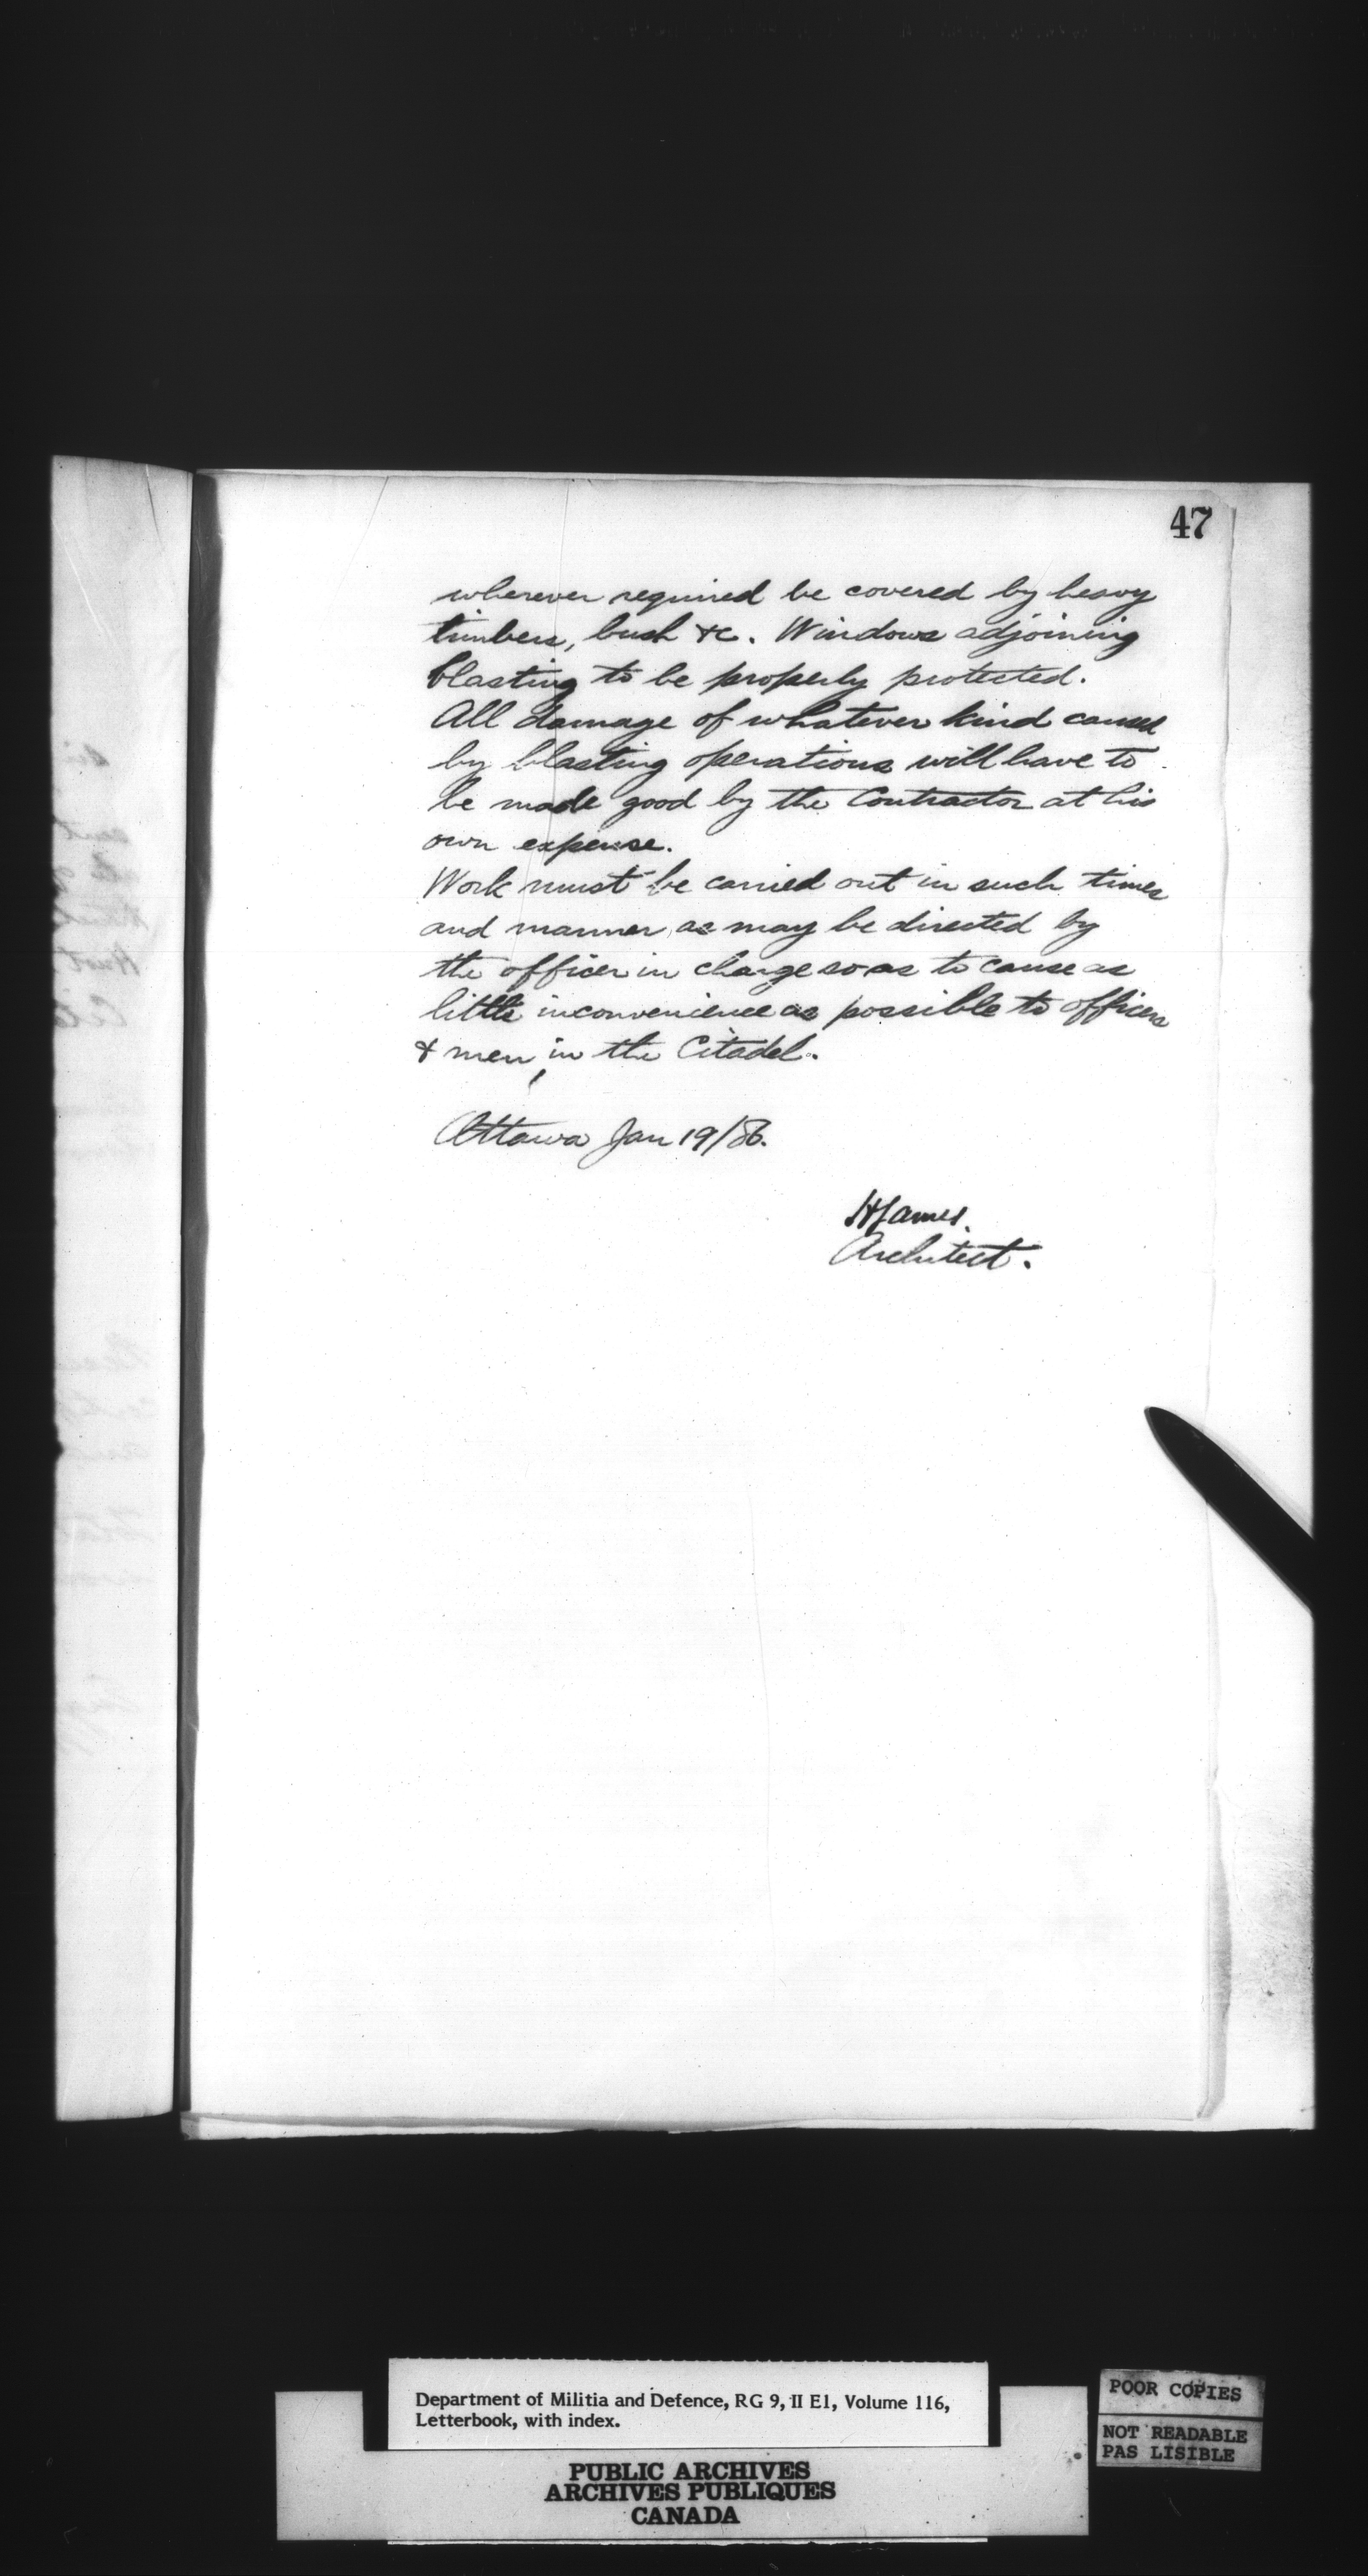 47
wherever required be covered by heavy
timbers, bush &c. Windows adjoining
blasting to be properly protected.
All damage of whatever kind caused
by blasting operations will have to
be made good by the Contractor at his
own expense.
Work must be carried out in such times
and manner as may be directed by
the officer in charge so as to cause as
little inconvenience as possible to officers
& men in the Citadel.
Ottawa Jan 19/86.
HJames.
Architect.
Department of Militia and Defence, RG 9, II E1, Volume 116,
Letterbook, with index.
PUBLIC ARCHIVES
ARCHIVES PUBLIQUES
CANADA
POOR COPIES
NOT READABLE
PAS LISIBLE